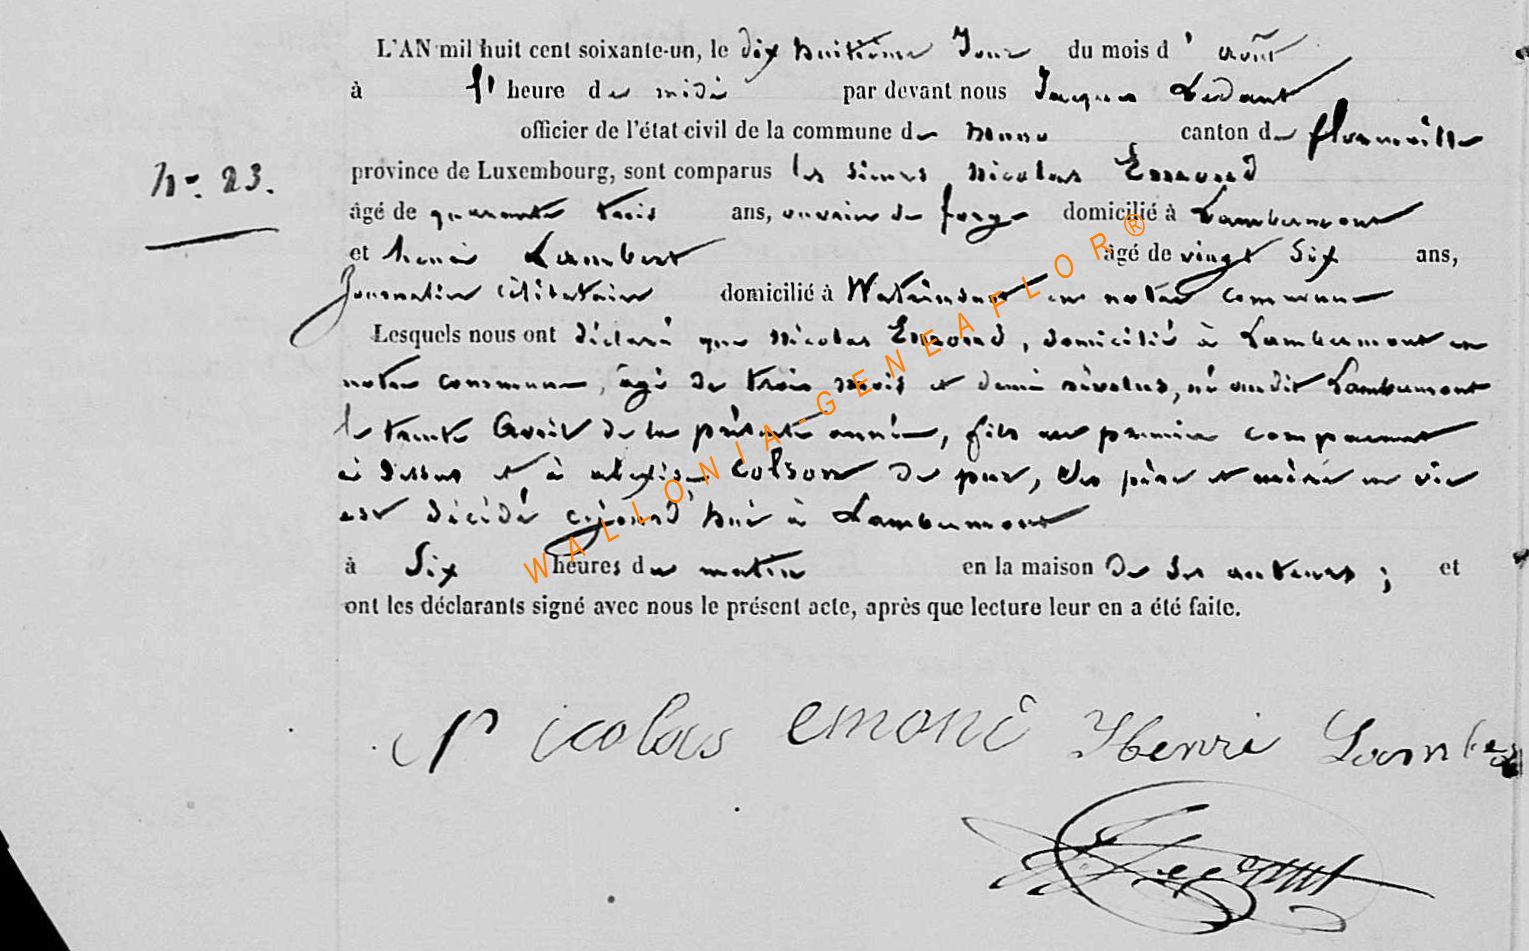 L'AN mil huit cent soixante-un, le dix huitième Jour du mois d'août
à l'heure de midi par devant nous Jacques Ledant
officier de l'état civil de la commune de Muno canton de florenville
N° 23.
province de Luxembourg, sont comparus les sieurs Nicolas Emond
âgé de quarante trois ans, ouvrier de forge domicilié à Lambermont
et henri Lambert âgé de vingt Six ans,
Journalier célibataire domicilié à Watrinsart en notre commune
Lesquels nous ont déclaré que Nicolas Emond, domicilié à Lambermont en
notre commune, âgé de trois mois et demi révolus, né audit Lambermont
le trente Avril de la présente année, fils au premier comparant
ci dessus et à Colson de pur, Ses père et mère en vie
est décédé cejourd'hui à Lambermont
à Six heures du matin en la maison de ses auteurs ; et
ont les déclarants signé avec nous le présent acte, après que lecture leur en a été faite.
Nicolas emond Henri Lambert
WALLONIA-GENEAFLOR®